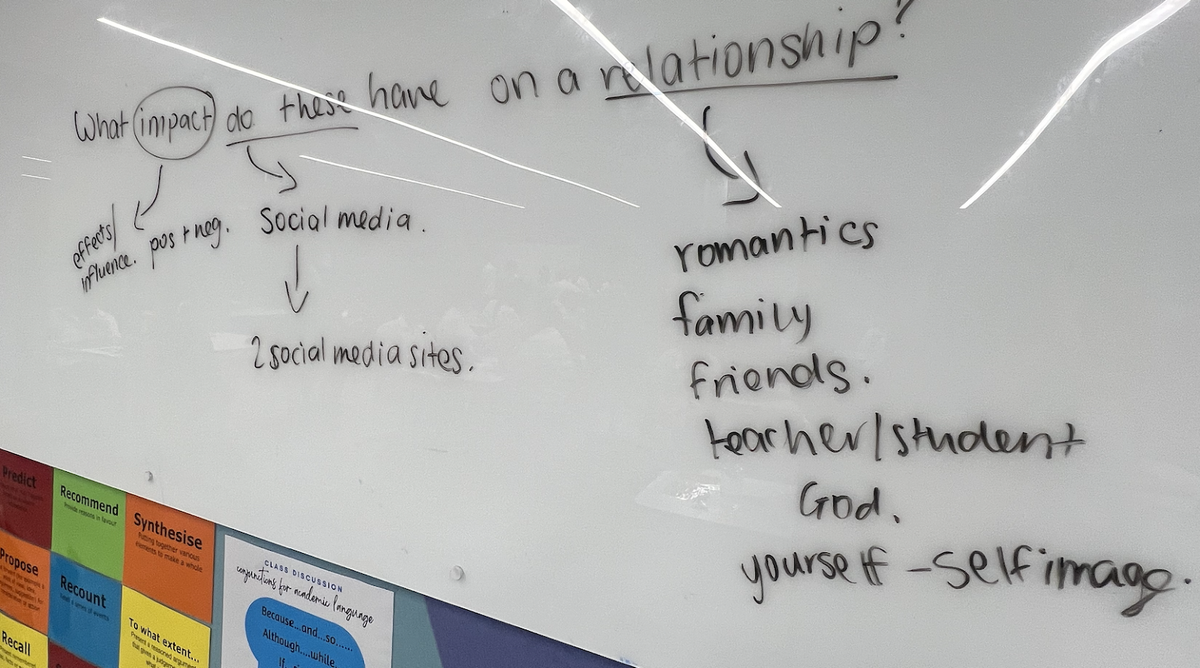 What impact do these have on a relationship?
effects/
influence.
pos + neg.
Social media.
2 social media sites.
romantics
family
friends.
teacher/student
God.
yourself - self image.
Predict
Recommend
Provide reasons in favour
Synthesise
Putting together various
elements to make a whole
Propose
Recount
Retell a series of events
To what extent...
Recall
CLASS DISCUSSION
conjunctions for academic language
Because...and...so......
Although....while..